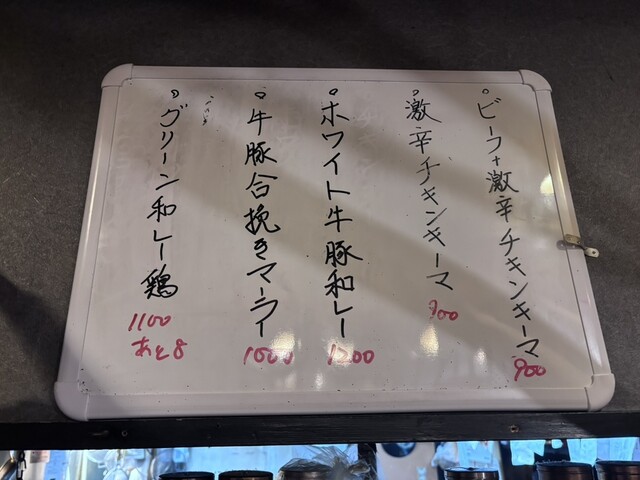 。ビーフ+激辛チキンキーマ
900
。激辛チキンキーマ
900
。ホワイト牛豚和レー
1200
。牛豚合挽きマーラー
1000
。グリーン和レー鶏
1100
あと8